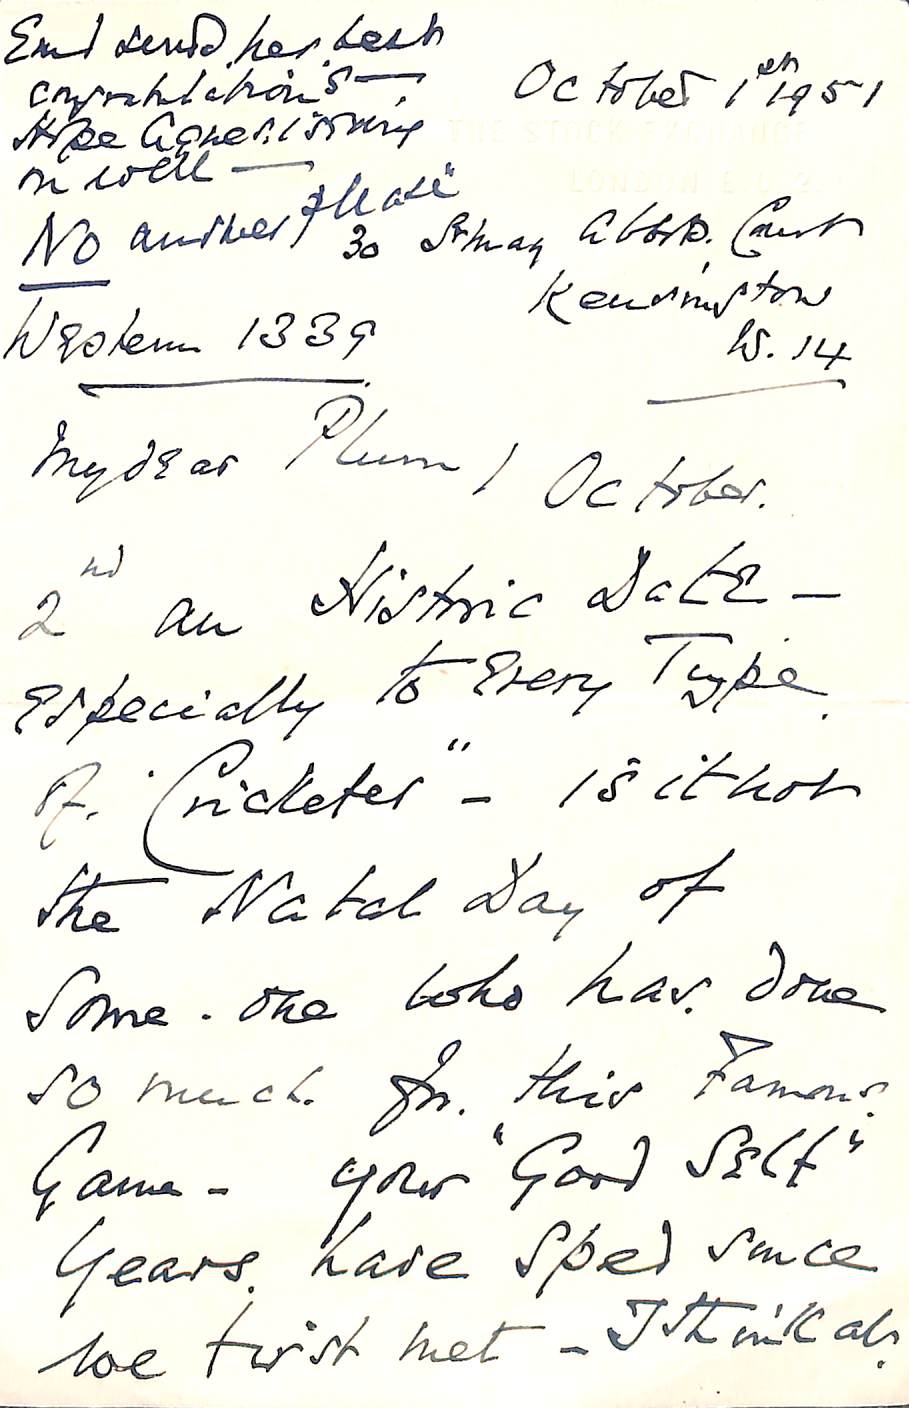 Em sends her best
congratulations —
Hope Agnes. is going
on well —
No answer please"
October 1st 1951
THE STOCK EXCHANGE
LONDON E.C.2.
30 St Mary Abbots. Court
Kensington
W. 14
Western 1339
My dear Plum / October.
2nd an Historic Date –
Especially to Every Type
of. "Cricketer" – is it not
the Natal Day of
Some. one who has. done
so much. for. this Famous.
Game – your "Good Self"
Years. have sped since
we first met – I think at.